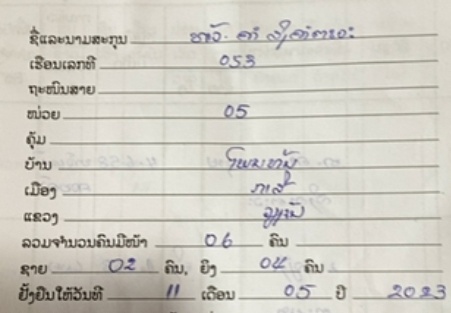 ຊື່ແລະນາມສະກຸນ ທ້າວ ຄຳ
ເຮືອນເລກທີ 053
ຖະໜົນສາຍ
ໜ່ວຍ 05
ຄຸ້ມ
ບ້ານ ໂພນທັນ
ເມືອງ
ແຂວງ
ລວມຈຳນວນຄົນມີໜ້າ 06 ຄົນ
ຊາຍ 02 ຄົນ, ຍິງ 04 ຄົນ
ຢັ້ງຢືນໃຫ້ວັນທີ 11 ເດືອນ 05 ປີ 2023